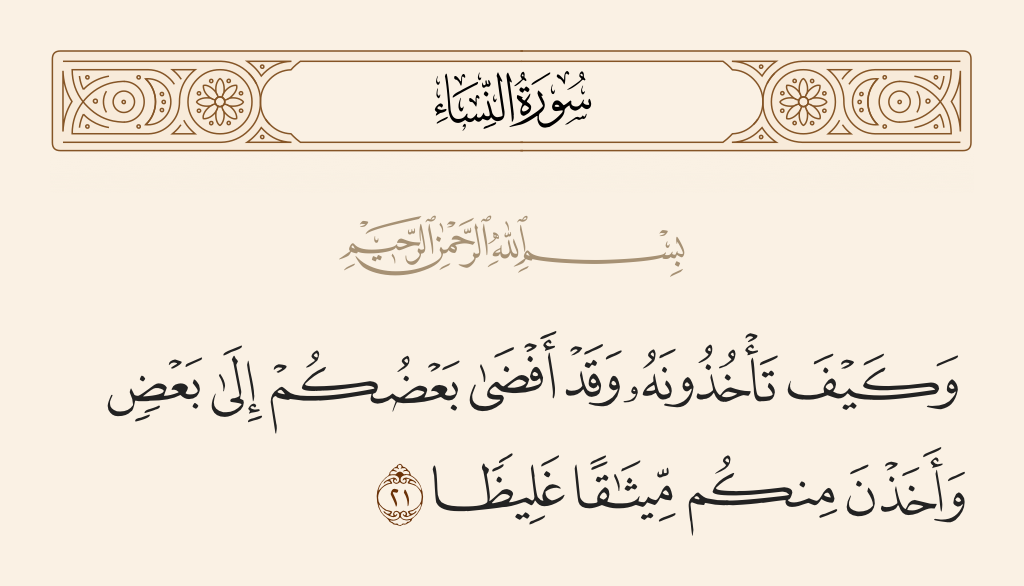 سُورَةُ النِّسَاءِ
بِسْمِ ٱللَّهِ ٱلرَّحْمَٰنِ ٱلرَّحِيمِ
وَكَيْفَ تَأْخُذُونَهُۥ وَقَدْ أَفْضَىٰ بَعْضُكُمْ إِلَىٰ بَعْضٍ
وَأَخَذْنَ مِنكُم مِّيثَٰقًا غَلِيظًا ٢١